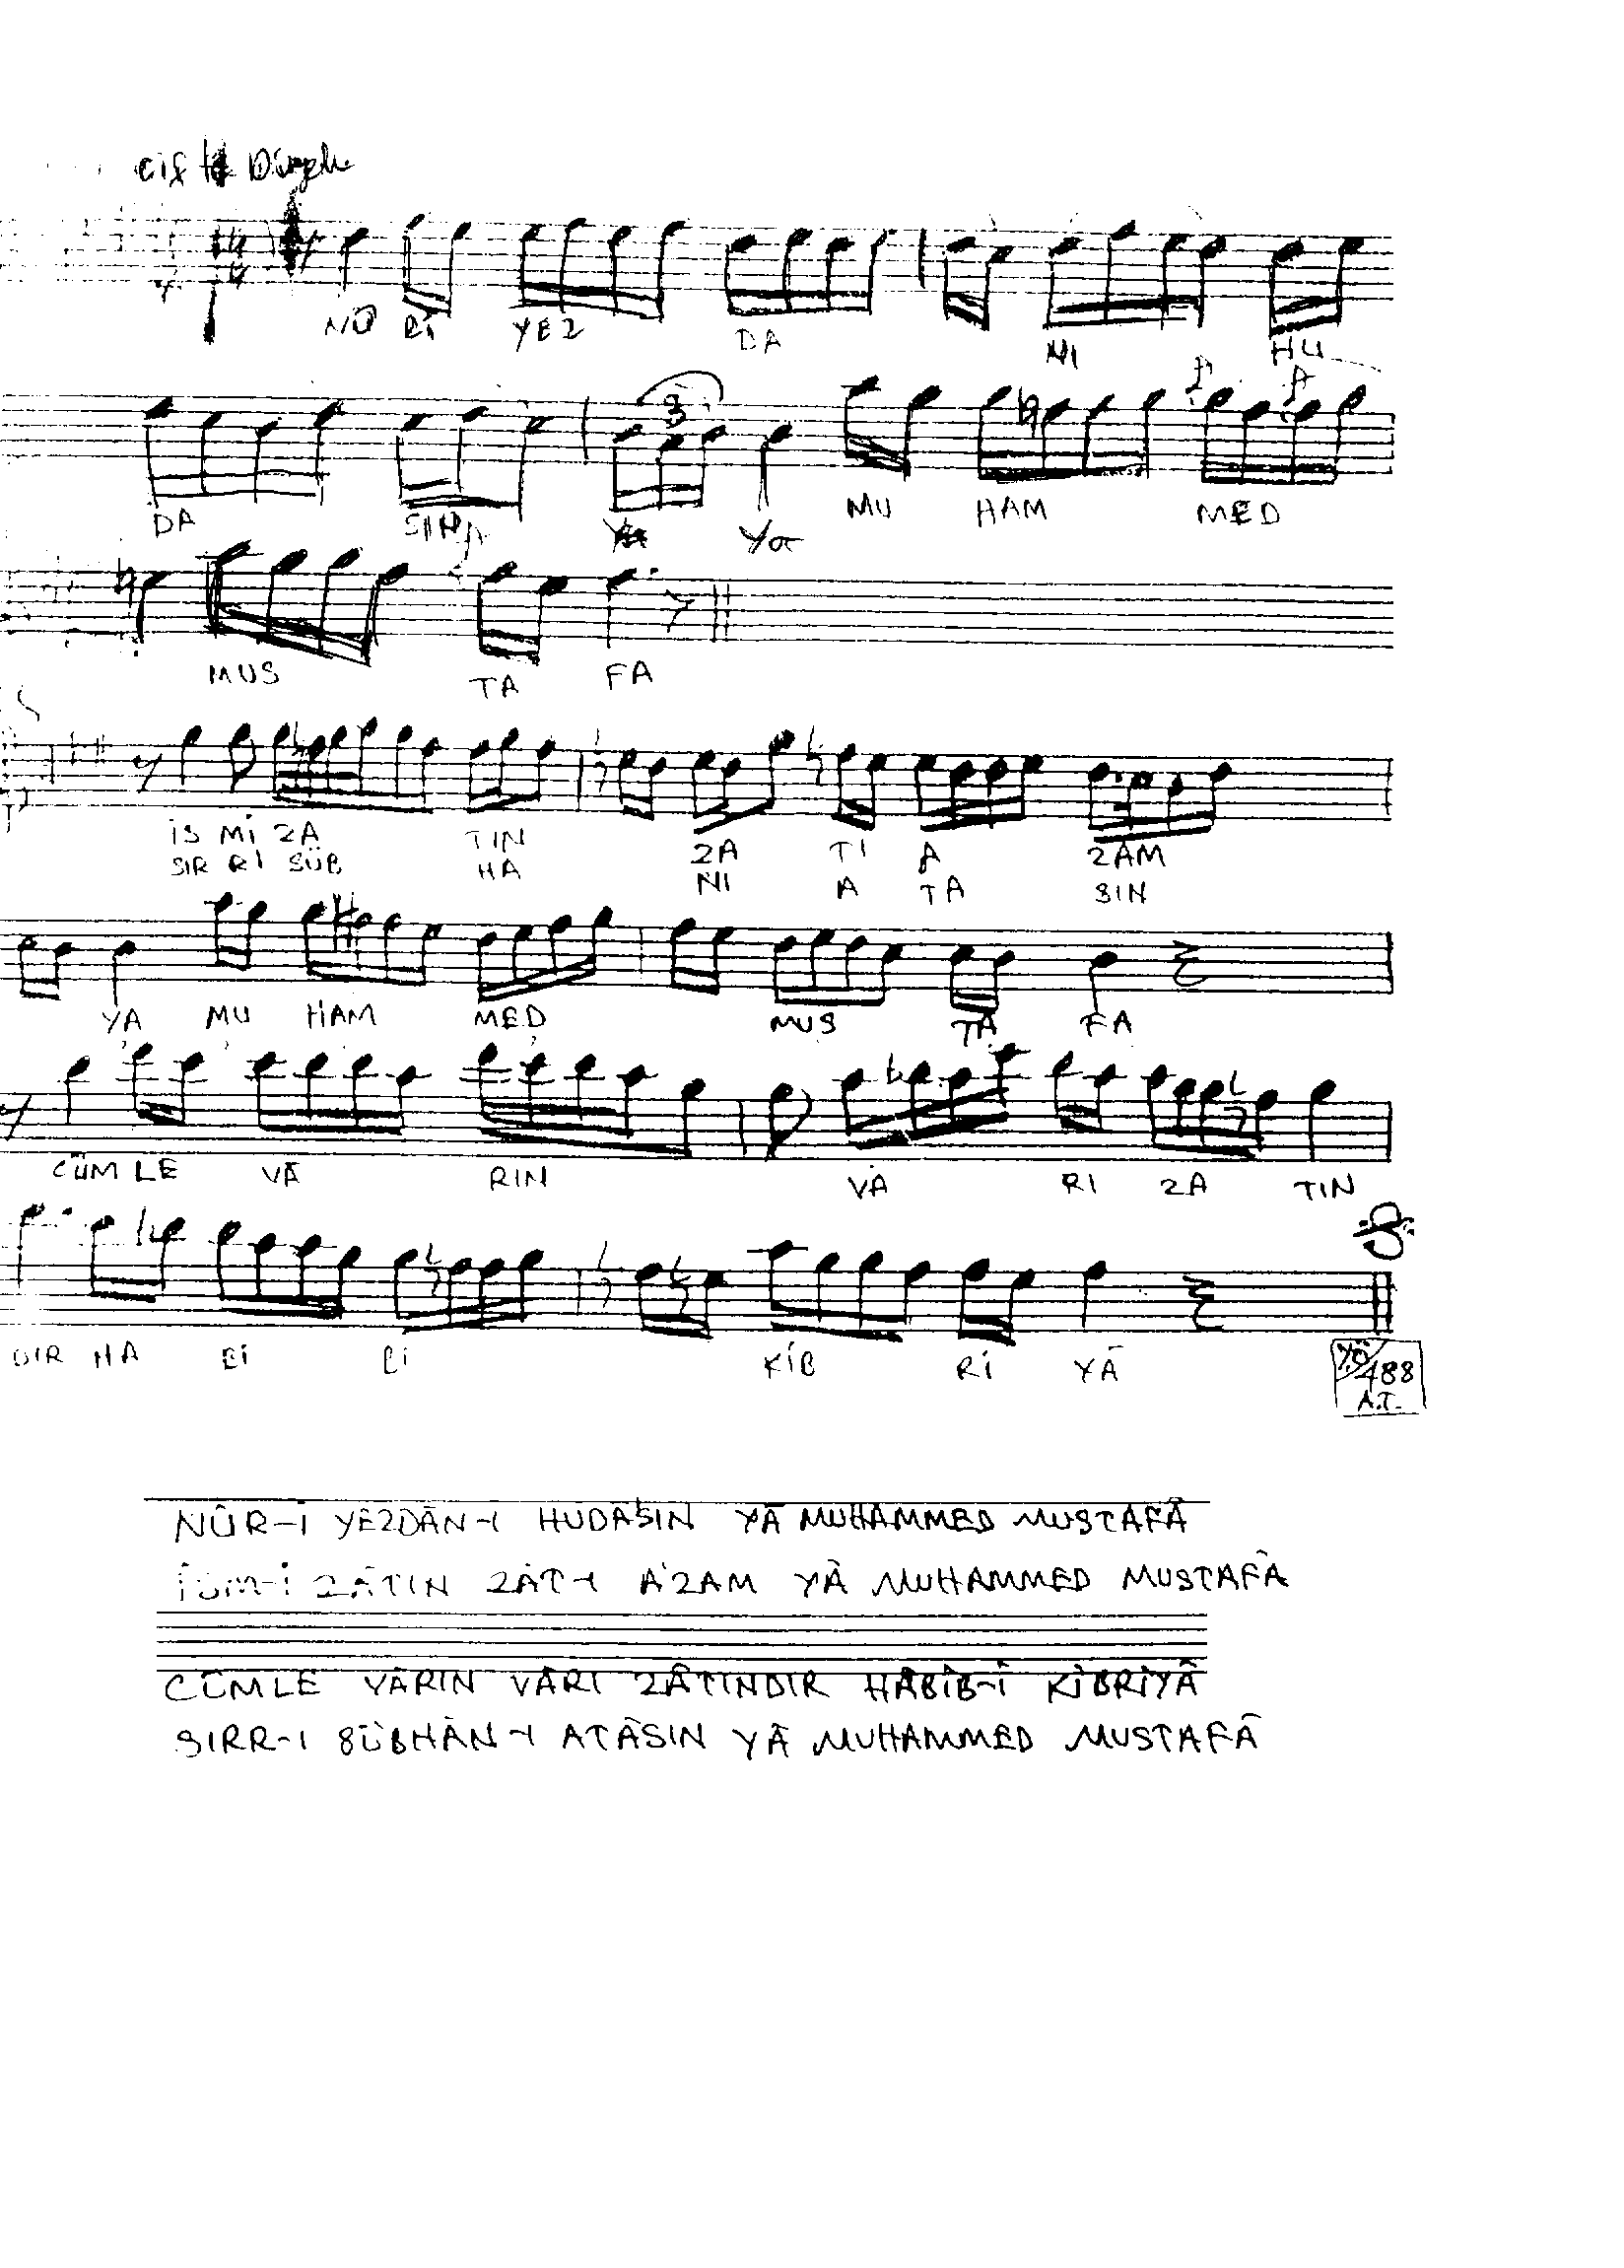 NÛ Rİ YEZ DA NI HU
DA SIN Ya MU HAM MED
3
MUS TA FA
İS Mİ ZA TIN ZA TI A ZAM
SIR RI SÜB HA NI A TA SIN
YA MU HAM MED MUS TA FA
CÜM LE VÂ RIN VA RI ZA TIN
DIR HA Bİ Bİ KİB Rİ YÂ
YÖ/488
A.T.
NÛR-İ YEZDÂN-I HUDÂSIN YÂ MUHAMMED MUSTAFÂ
İSM-İ ZÂTIN ZÂT-I A'ZAM YÂ MUHAMMED MUSTAFÂ
CÜMLE VÂRIN VÂRI ZÂTINDIR HABİB-İ KİBRİYÂ
SIRR-I SÜBHÂN-I ATÂSIN YÂ MUHAMMED MUSTAFÂ